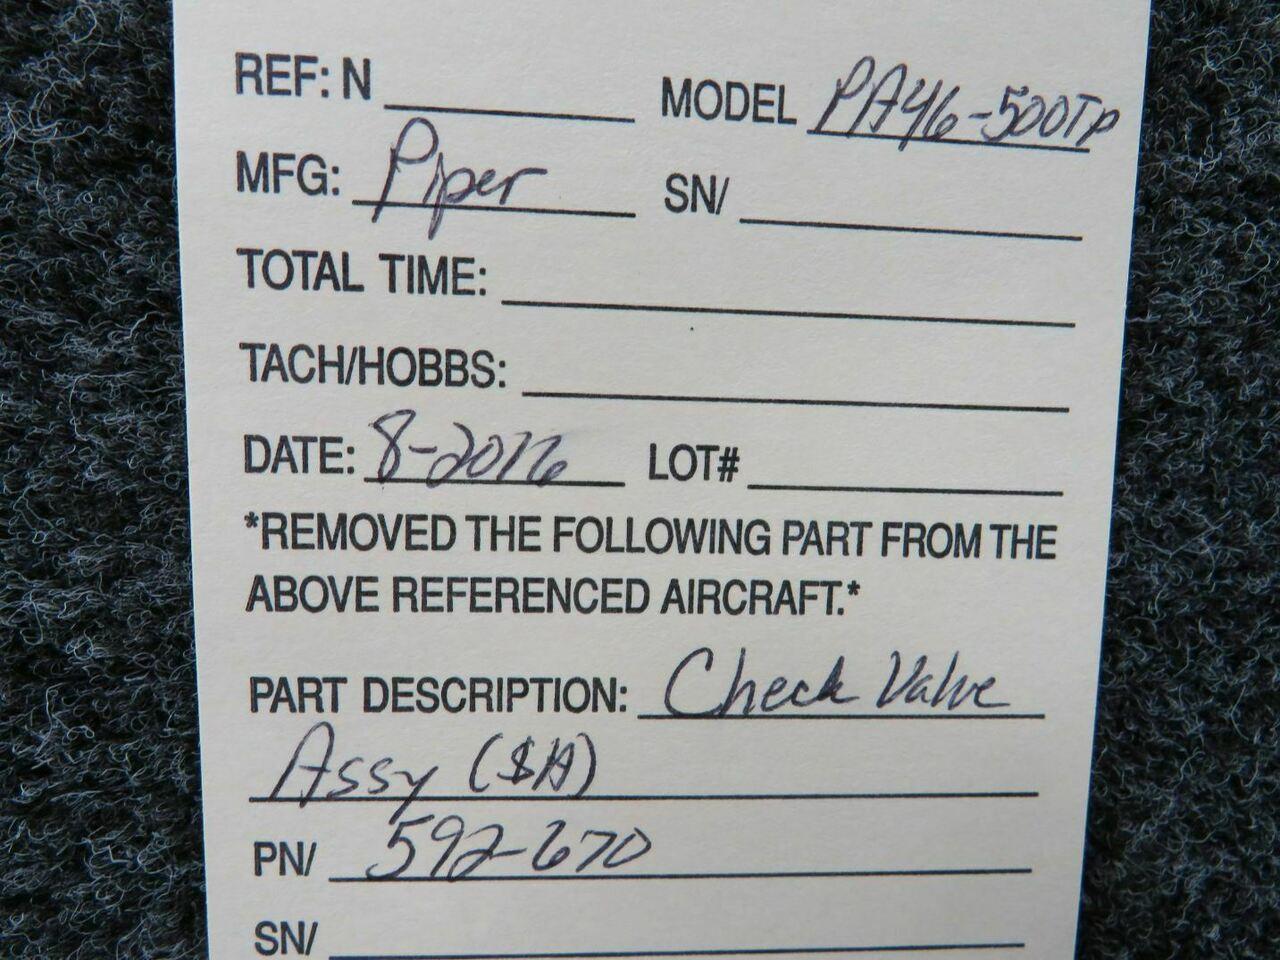 REF: N MODEL PA46-500TP
MFG: Piper SN/
TOTAL TIME:
TACH/HOBBS:
DATE: 8-2016 LOT#
*REMOVED THE FOLLOWING PART FROM THE
ABOVE REFERENCED AIRCRAFT.*
PART DESCRIPTION: Check Valve
Assy
PN/ 592-670
SN/